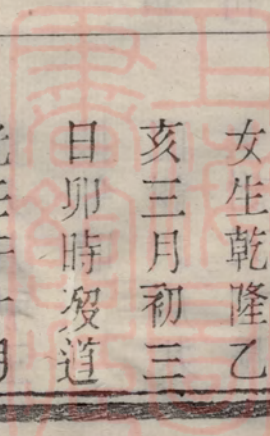 女生乾隆乙
亥三月初三
日卯時歿道